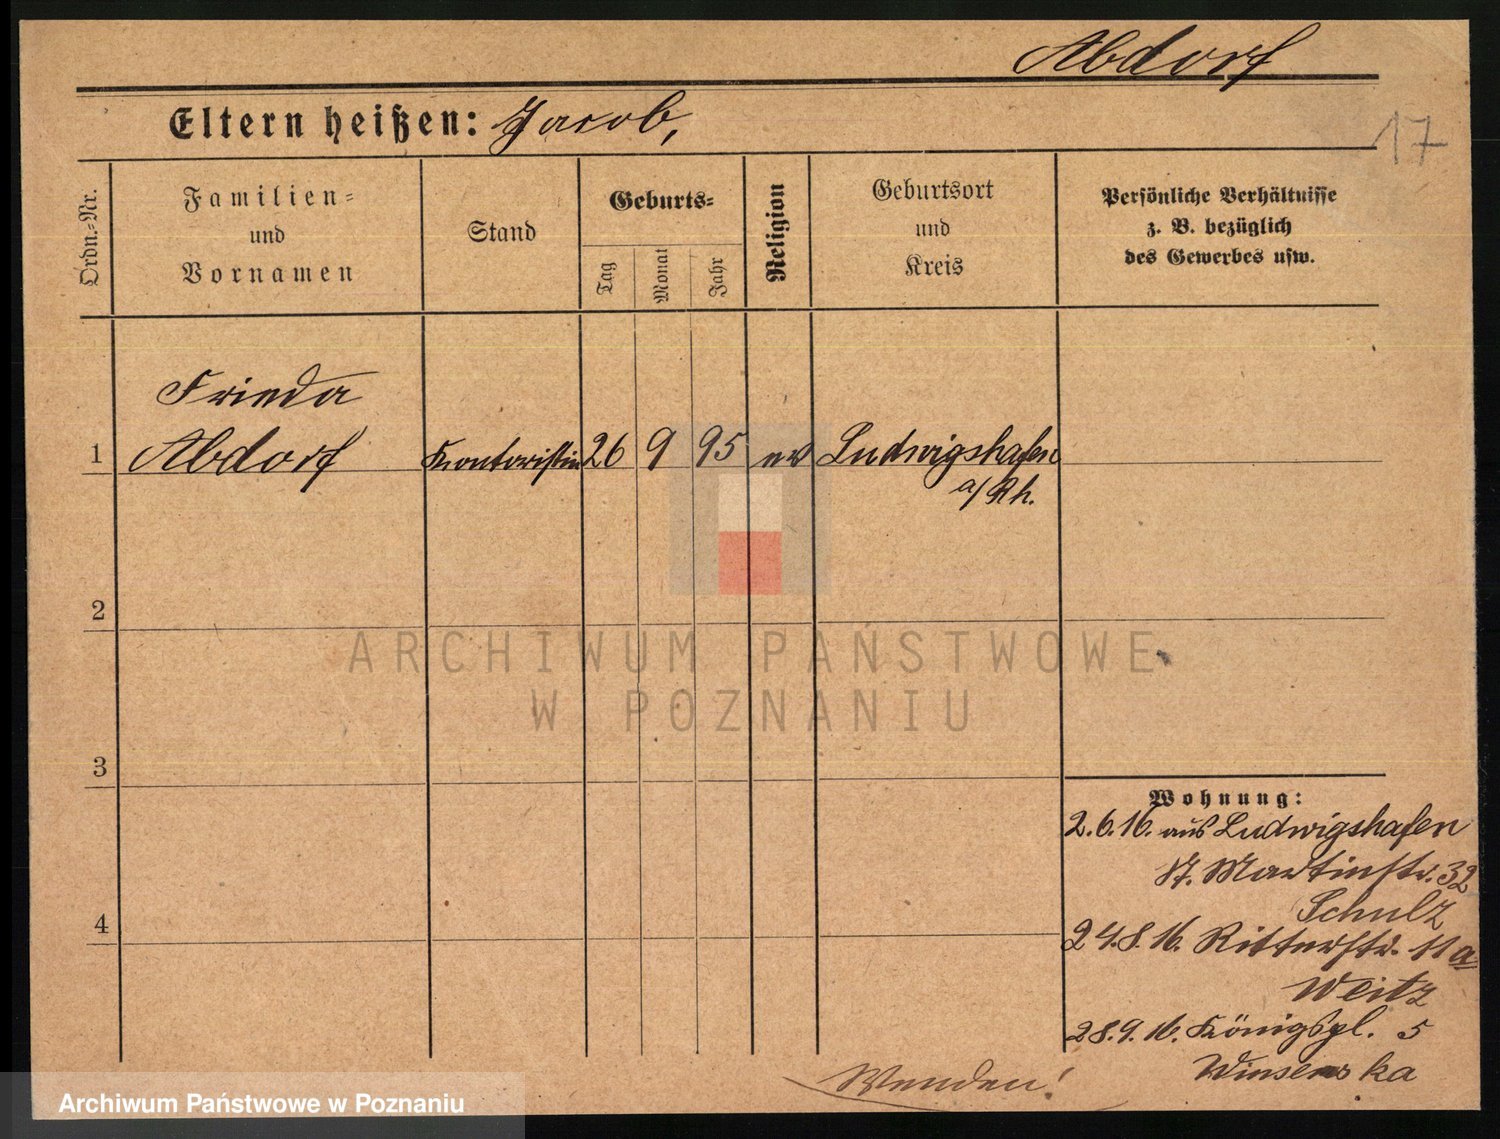 Abdorf
Eltern heißen: Jacob,
17
Ordn.-Nr.
Familien-
und
Vornamen
Stand
Geburts-
Tag
Monat
Jahr
Religion
Geburtsort
und
Kreis
Persönliche Verhältnisse
z. B. bezüglich
des Gewerbes usw.
Frieda
1 Abdorf Kontoristin 26 9 95 ev Ludwigshafen
a/Rh.
2
ARCHIWUM PAŃSTWOWE
W POZNANIU
3
Wohnung:
2.6.16. aus Ludwigshafen
Martinstr. 32
Schulz
4
24.8.16. Ritterstr. 11a
Weitz
28.9.16. Königspl. 5
Wenden!
Archiwum Państwowe w Poznaniu